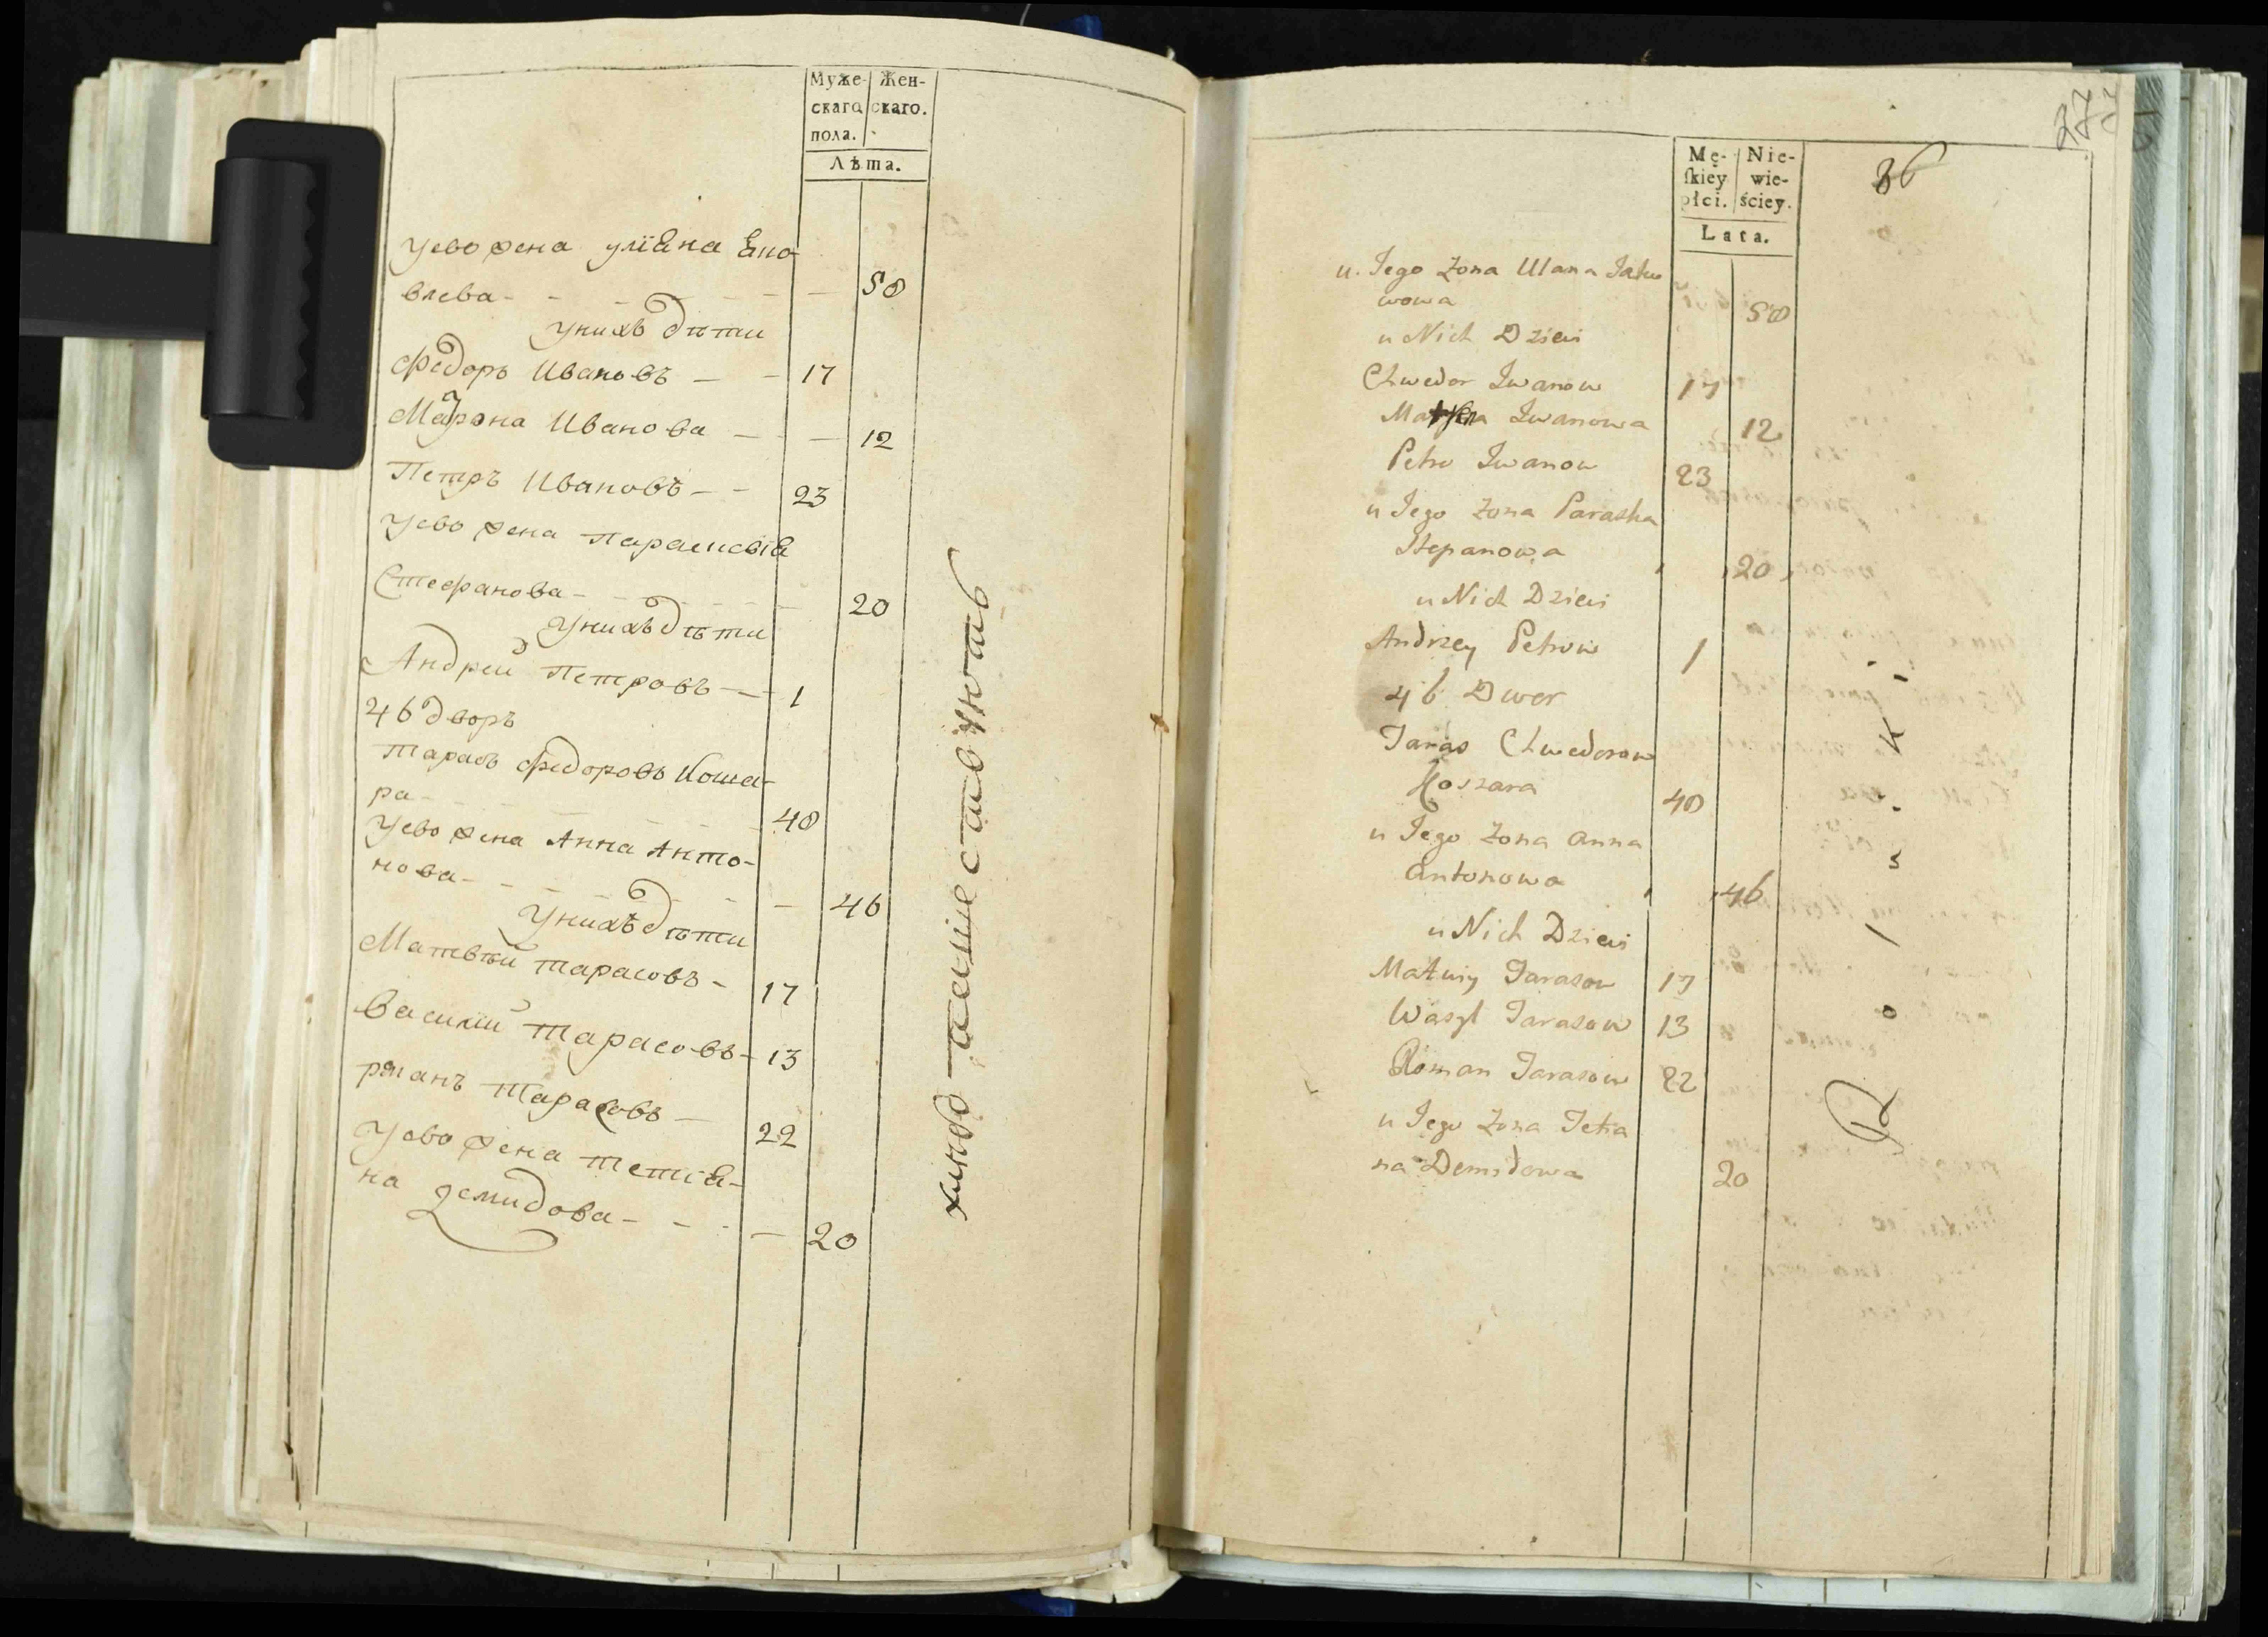 Муже-
скаго
пола.
Жен-
скаго.
Лѣта.
Уево жена улїѧна Ѧко
влева - - - - 50
унихъ дѣти
Федоръ Ивановъ - - 17
Марѳна Иванова - - 12
Петръ Ивановъ - - 23
Уево жена параскевїѧ
Стефанова - - - - 20
Унихъ дѣти
Андрей Петровъ - 1
46 дворъ
тарасъ федоровъ Коша-
ра - - - - 40
Уево жена Анна Анто-
нова - - - - 46
Унихъ дѣти
Матвѣй тарасовъ - 17
Василїй тарасовъ - 13
романъ тарасовъ - 22
Уево жена тетїѧ-
на демидова - - - 20
27
36
Mę-
ſkiey
płci.
Nie-
wie-
ściey.
Lata.
u. Jego Żona Ulana Jako
wowa 50
u Nich Dzieci
Chwedor Iwanow 17
Iwanowa 12
Petro Iwanow 23
u Jego Żona Paraska
Stepanowa 20
u Nich Dzieci
Andrzey Petrow 1
46 Dwor
Taras Chwedorow
Koszara 40
u Jego Żona Anna
Antonowa 46
u Nich Dzieci
Matwiy Tarasow 17
Wasyl Tarasow 13
Roman Tarasow 22
u Jego Żona Tetia
na Demidowa 20